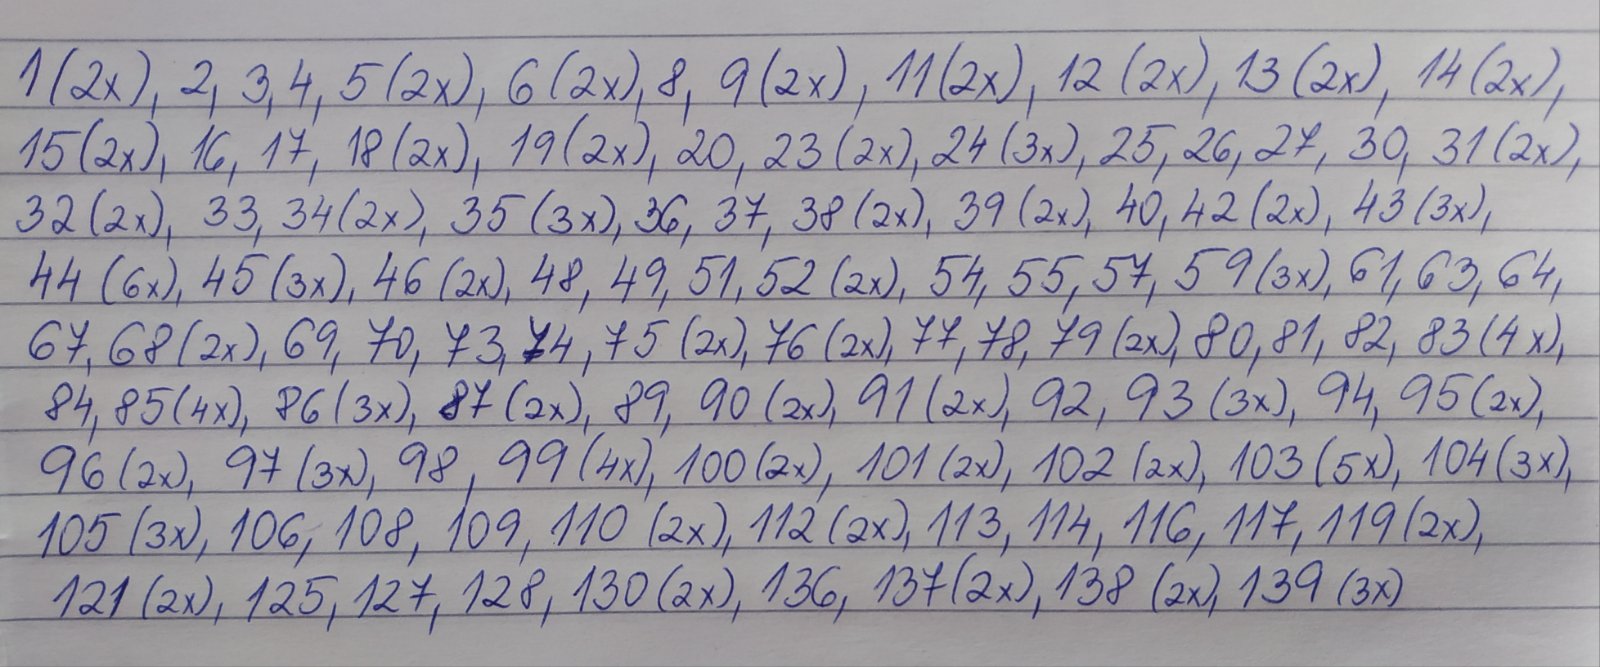 1(2x), 2, 3, 4, 5(2x), 6(2x), 8, 9(2x), 11(2x), 12(2x), 13(2x), 14(2x),
15(2x), 16, 17, 18(2x), 19(2x), 20, 23(2x), 24(3x), 25, 26, 27, 30, 31(2x),
32(2x), 33, 34(2x), 35(3x), 36, 37, 38(2x), 39(2x), 40, 42(2x), 43(3x),
44(6x), 45(3x), 46(2x), 48, 49, 51, 52(2x), 54, 55, 57, 59(3x), 61, 63, 64,
67, 68(2x), 69, 70, 73, 74, 75(2x), 76(2x), 77, 78, 79(2x), 80, 81, 82, 83(4x),
84, 85(4x), 86(3x), 87(2x), 89, 90(2x), 91(2x), 92, 93(3x), 94, 95(2x),
96(2x), 97(3x), 98, 99(4x), 100(2x), 101(2x), 102(2x), 103(5x), 104(3x),
105(3x), 106, 108, 109, 110(2x), 112(2x), 113, 114, 116, 117, 119(2x),
121(2x), 125, 127, 128, 130(2x), 136, 137(2x), 138(2x), 139(3x)